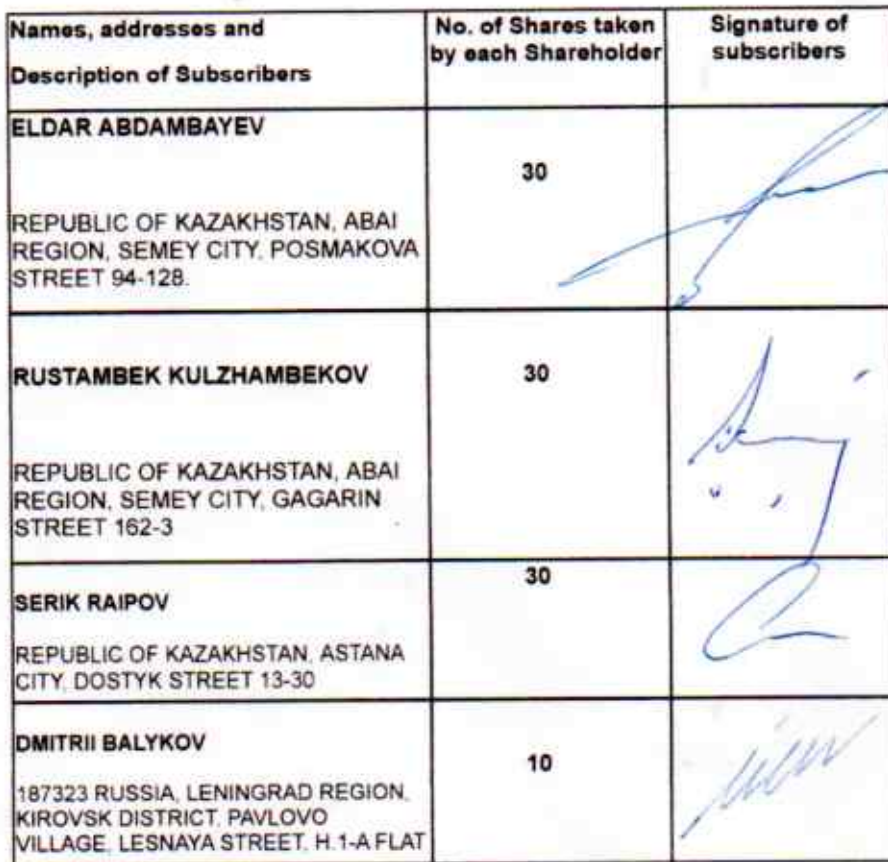 Names, addresses and
Description of Subscribers
No. of Shares taken
by each Shareholder
Signature of
subscribers
ELDAR ABDAMBAYEV
REPUBLIC OF KAZAKHSTAN, ABAI
REGION, SEMEY CITY, POSMAKOVA
STREET 94-128.
30
RUSTAMBEK KULZHAMBEKOV
REPUBLIC OF KAZAKHSTAN, ABAI
REGION, SEMEY CITY, GAGARIN
STREET 162-3
30
SERIK RAIPOV
REPUBLIC OF KAZAKHSTAN, ASTANA
CITY, DOSTYK STREET 13-30
30
DMITRII BALYKOV
187323 RUSSIA, LENINGRAD REGION,
KIROVSK DISTRICT, PAVLOVO
VILLAGE, LESNAYA STREET, H.1-A FLAT
10